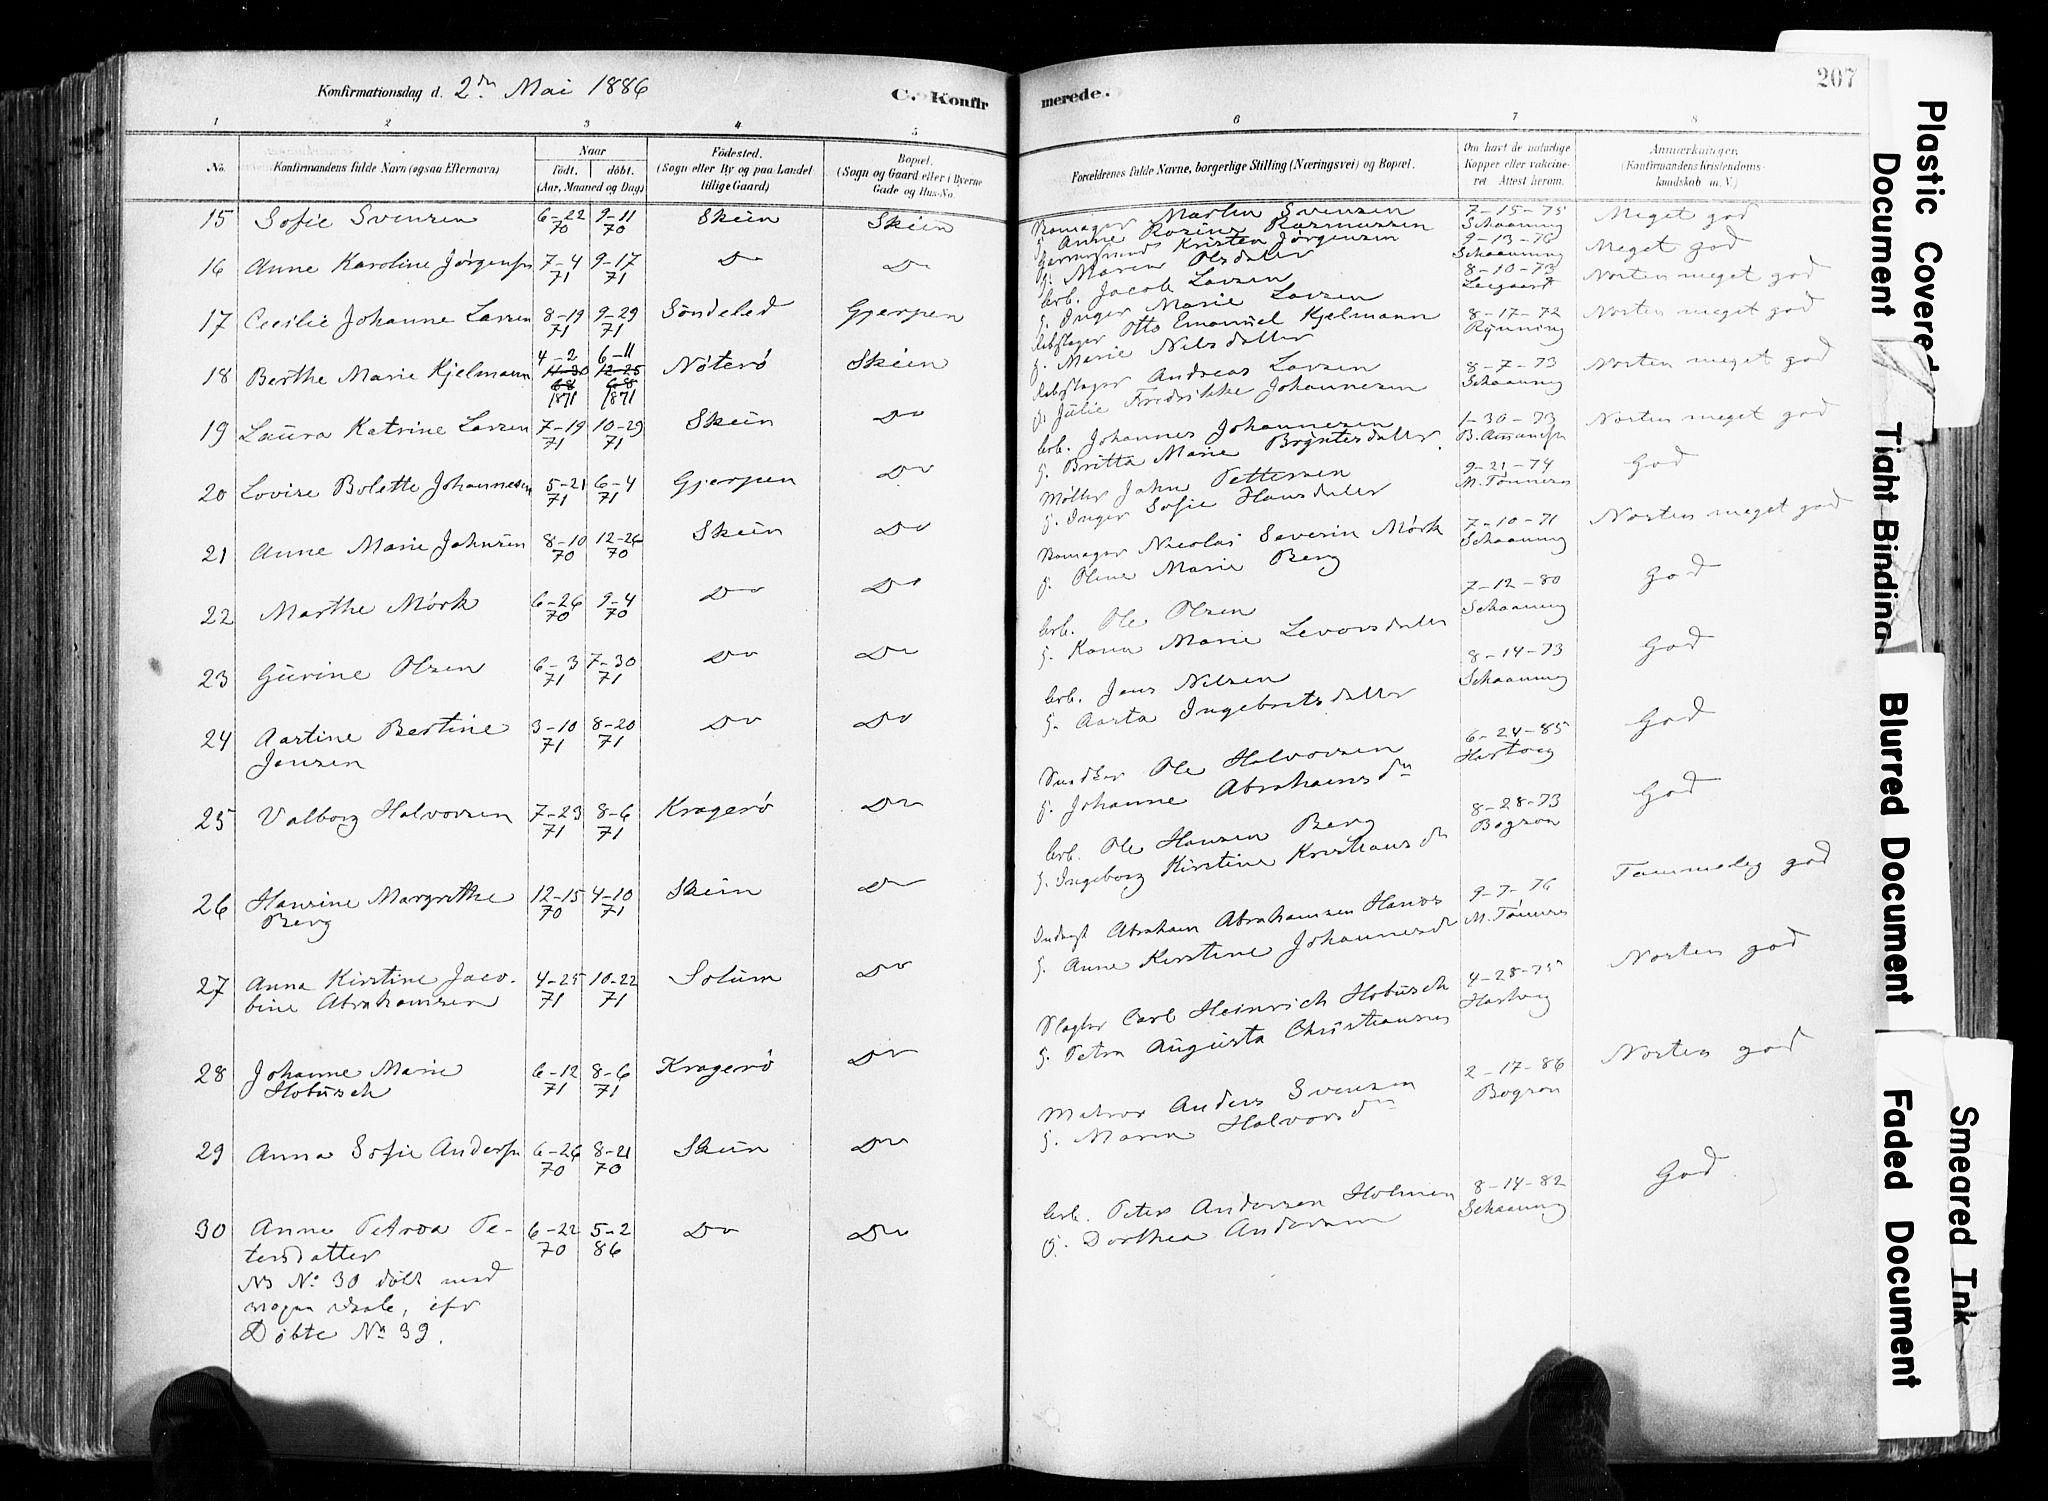 Konfirmationsdag d. 2den Mai 1886
C. Konfirmerede.
207
1 2 3 4 5 6 7 8
No. Konfirmandens fulde Navn (ogsaa Efternavn) Naar født. døbt. (Aar, Maaned og Dag) Fødested. (Sogn eller By og paa Landet tillige Gaard) Bopæl. (Sogn og Gaard eller i Byerne Gade og Hus-No. Forældrenes fulde Navne, borgerlige Stilling (Næringsvei) og Bopæl. Om havt de naturlige Kopper eller vakcineret. Attest herom. Anmærkninger. (Konfirmandens Kristendomskundskab m. V.)
15 Sofie Svensen 6-22 70 9-11 70 Skien Skien
Martin Svensen 7-15-75 Meget god
G. Anne Rosine Rasmussen Schaaning
16 Anne Karoline Jörgensen 7-4 71 9-17 71 Do Do
Kristen Jørgensen 9-13-76 Meget god
G. Maren Olsdatter Schaaning
17 Cecilie Johanne Larsen 8-19 71 9-29 71 Söndeled Gjerpen
Arb. Jacob Larsen 8-10-73 Næsten meget god
G. Inger Marie Larsen Leegaard
18 Berthe Marie Kjelmann 4-2 6-11 1871 1871 Nöterö Skien
Rebslager Otto Emanuel Kjelmann 8-17-72 Næsten meget god
G. Marie Nilsdatter Rynning
19 Laura Katrine Larsen 7-19 71 10-29 71 Skien Do
Rebslager Andreas Larsen 8-7-73 Næsten meget god
G. Julie Fredrikke Johannesen Schaaning
20 Lovise Bolette Johannesen 5-21 71 6-4 71 Gjerpen Do
Arb. Johannes Johannesen 1-30-73 Næsten meget god
G. Britta Marie B. Amundsen
21 Anne Marie Johnsen 8-10 70 12-26 70 Skien Do
Møller John Pettersen 9-21-74 God
G. Inger Sofie Hansdatter M. Tönnesen
22 Marthe Mörk 6-26 70 9-4 70 Do Do
Nicolai Severin Mörk 7-10-71 Næsten meget god
G. Oline Marie Berg Schaaning
23 Gurine Olsen 6-3 71 7-30 71 Do Do
Arb. Ole Olsen 7-12-80 God
G. Karen Marie Levorsdatter Schaaning
24 Aartine Bertine Jensen 3-10 71 8-20 71 Do Do
Arb. Jens Nilsen 8-14-73 God
G. Aarta Ingebretsdatter Schaaning
25 Valborg Halvorsen 7-23 71 8-6 71 Kragerö Do
Snedker Ole Halvorsen 6-24-85 God
G. Johanne Abrahamsdr Hartvig
26 Hansine Margrethe Berg 12-15 70 4-10 71 Skien Do
Arb. Ole Hansen Berg 8-28-73 God
G. Ingeborg Kirstine Kristiansdr
27 Anna Kirstine Jacobine Abrahamsen 4-25 71 10-22 71 Solum Do
Abraham Abrahamsen 9-7-76 Temmelig god
G. Anne Kirstine Johannesdr M. Tönnes
28 Johanne Marie Hobüsch 6-12 71 8-6 71 Kragerö Do
Slagter Carl Heinrich Hobüsch 4-28-75 Næsten god
G. Petra Augusta Christiansen Hartvig
29 Anna Sofie Andersen 6-26 70 8-21 70 Skien Do
Matros Anders Svensen 2-17-86 Næsten god
G. Maren Halvorsdr
30 Anne Petrea Petersdatter 6-22 70 5-2 86 Do Do
Arb. Peter Andersen Holmen 8-14-82 God
G. Dorthea Andersen Schaaning
NB No 30 döbt med
Daab, cfr
Döbte No 39.
Plastic Covered Document
Tight Binding
Blurred Document
Faded Document
Smeared Ink